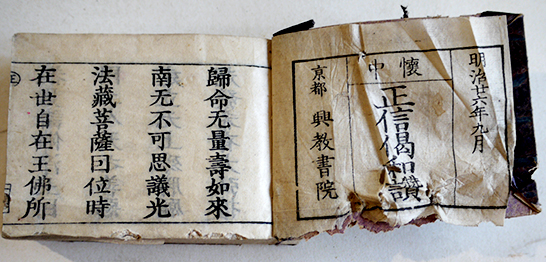 明治廿六年九月
懷中
正信偈和讃
京都 興教書院
歸命无量壽如來
南无不可思議光
法藏菩薩囙位時
在世自在王佛所